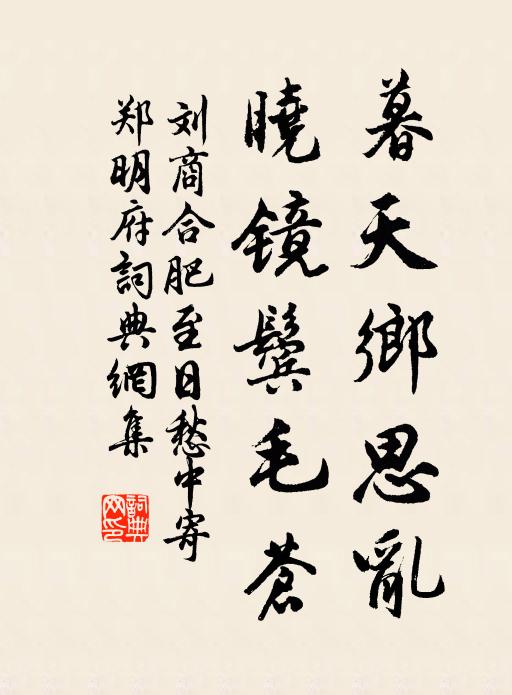 暮天鄉思亂
曉鏡鬢毛蒼
刘商合肥至日愁中寄
郑明府詞典網集
詞典网印